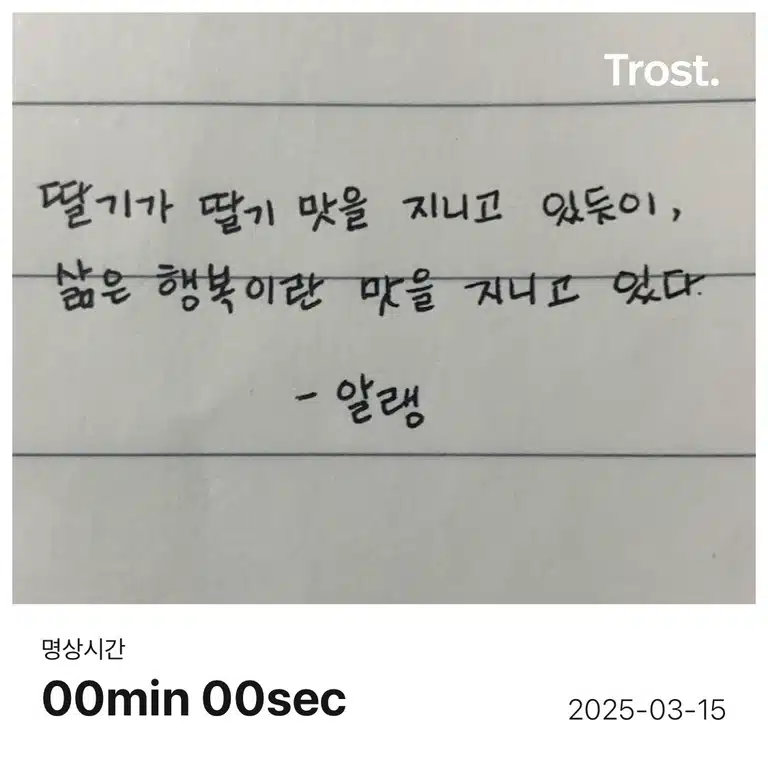 Trost.
딸기가 딸기 맛을 지니고 있듯이,
삶은 행복이란 맛을 지니고 있다.
- 알랭
명상시간
00min 00sec
2025-03-15